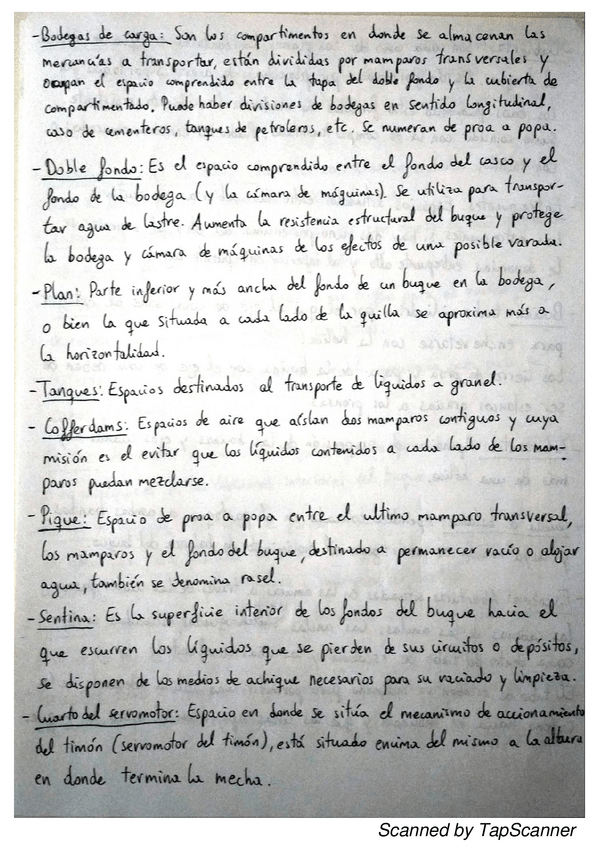 - Bodegas de carga: Son los compartimentos en donde se almacenan las
mercancías a transportar, están divididas por mamparos transversales y
ocupan el espacio comprendido entre la tapa del doble fondo y la cubierta de
compartimentado. Puede haber divisiones de bodegas en sentido longitudinal,
caso de cementeros, tanques de petroleros, etc. Se numeran de proa a popa.
- Doble fondo: Es el espacio comprendido entre el fondo del casco y el
fondo de la bodega (y la cámara de máquinas). Se utiliza para transpor-
tar agua de lastre. Aumenta la resistencia estructural del buque y protege
la bodega y cámara de máquinas de los efectos de una posible varada.
- Plan: Parte inferior y más ancha del fondo de un buque en la bodega,
o bien la que situada a cada lado de la quilla se aproxima más a
la horizontalidad.
- Tanques: Espacios destinados al transporte de líquidos a granel.
- Cofferdams: Espacios de aire que aíslan dos mamparos contiguos y cuya
misión es el evitar que los líquidos contenidos a cada lado de los mam-
paros puedan mezclarse.
- Pique: Espacio de proa a popa entre el ultimo mamparo transversal,
los mamparos y el fondo del buque, destinado a permanecer vacío o alojar
agua, también se denomina rasel.
- Sentina: Es la superficie interior de los fondos del buque hacia el
que escurren los líquidos que se pierden de sus circuitos o depósitos,
se disponen de los medios de achique necesarios para su vaciado y limpieza.
- Cuarto del servomotor: Espacio en donde se sitúa el mecanismo de accionamiento
del timón (servomotor del timón), está situado encima del mismo a la altura
en donde termina la mecha.
Scanned by TapScanner